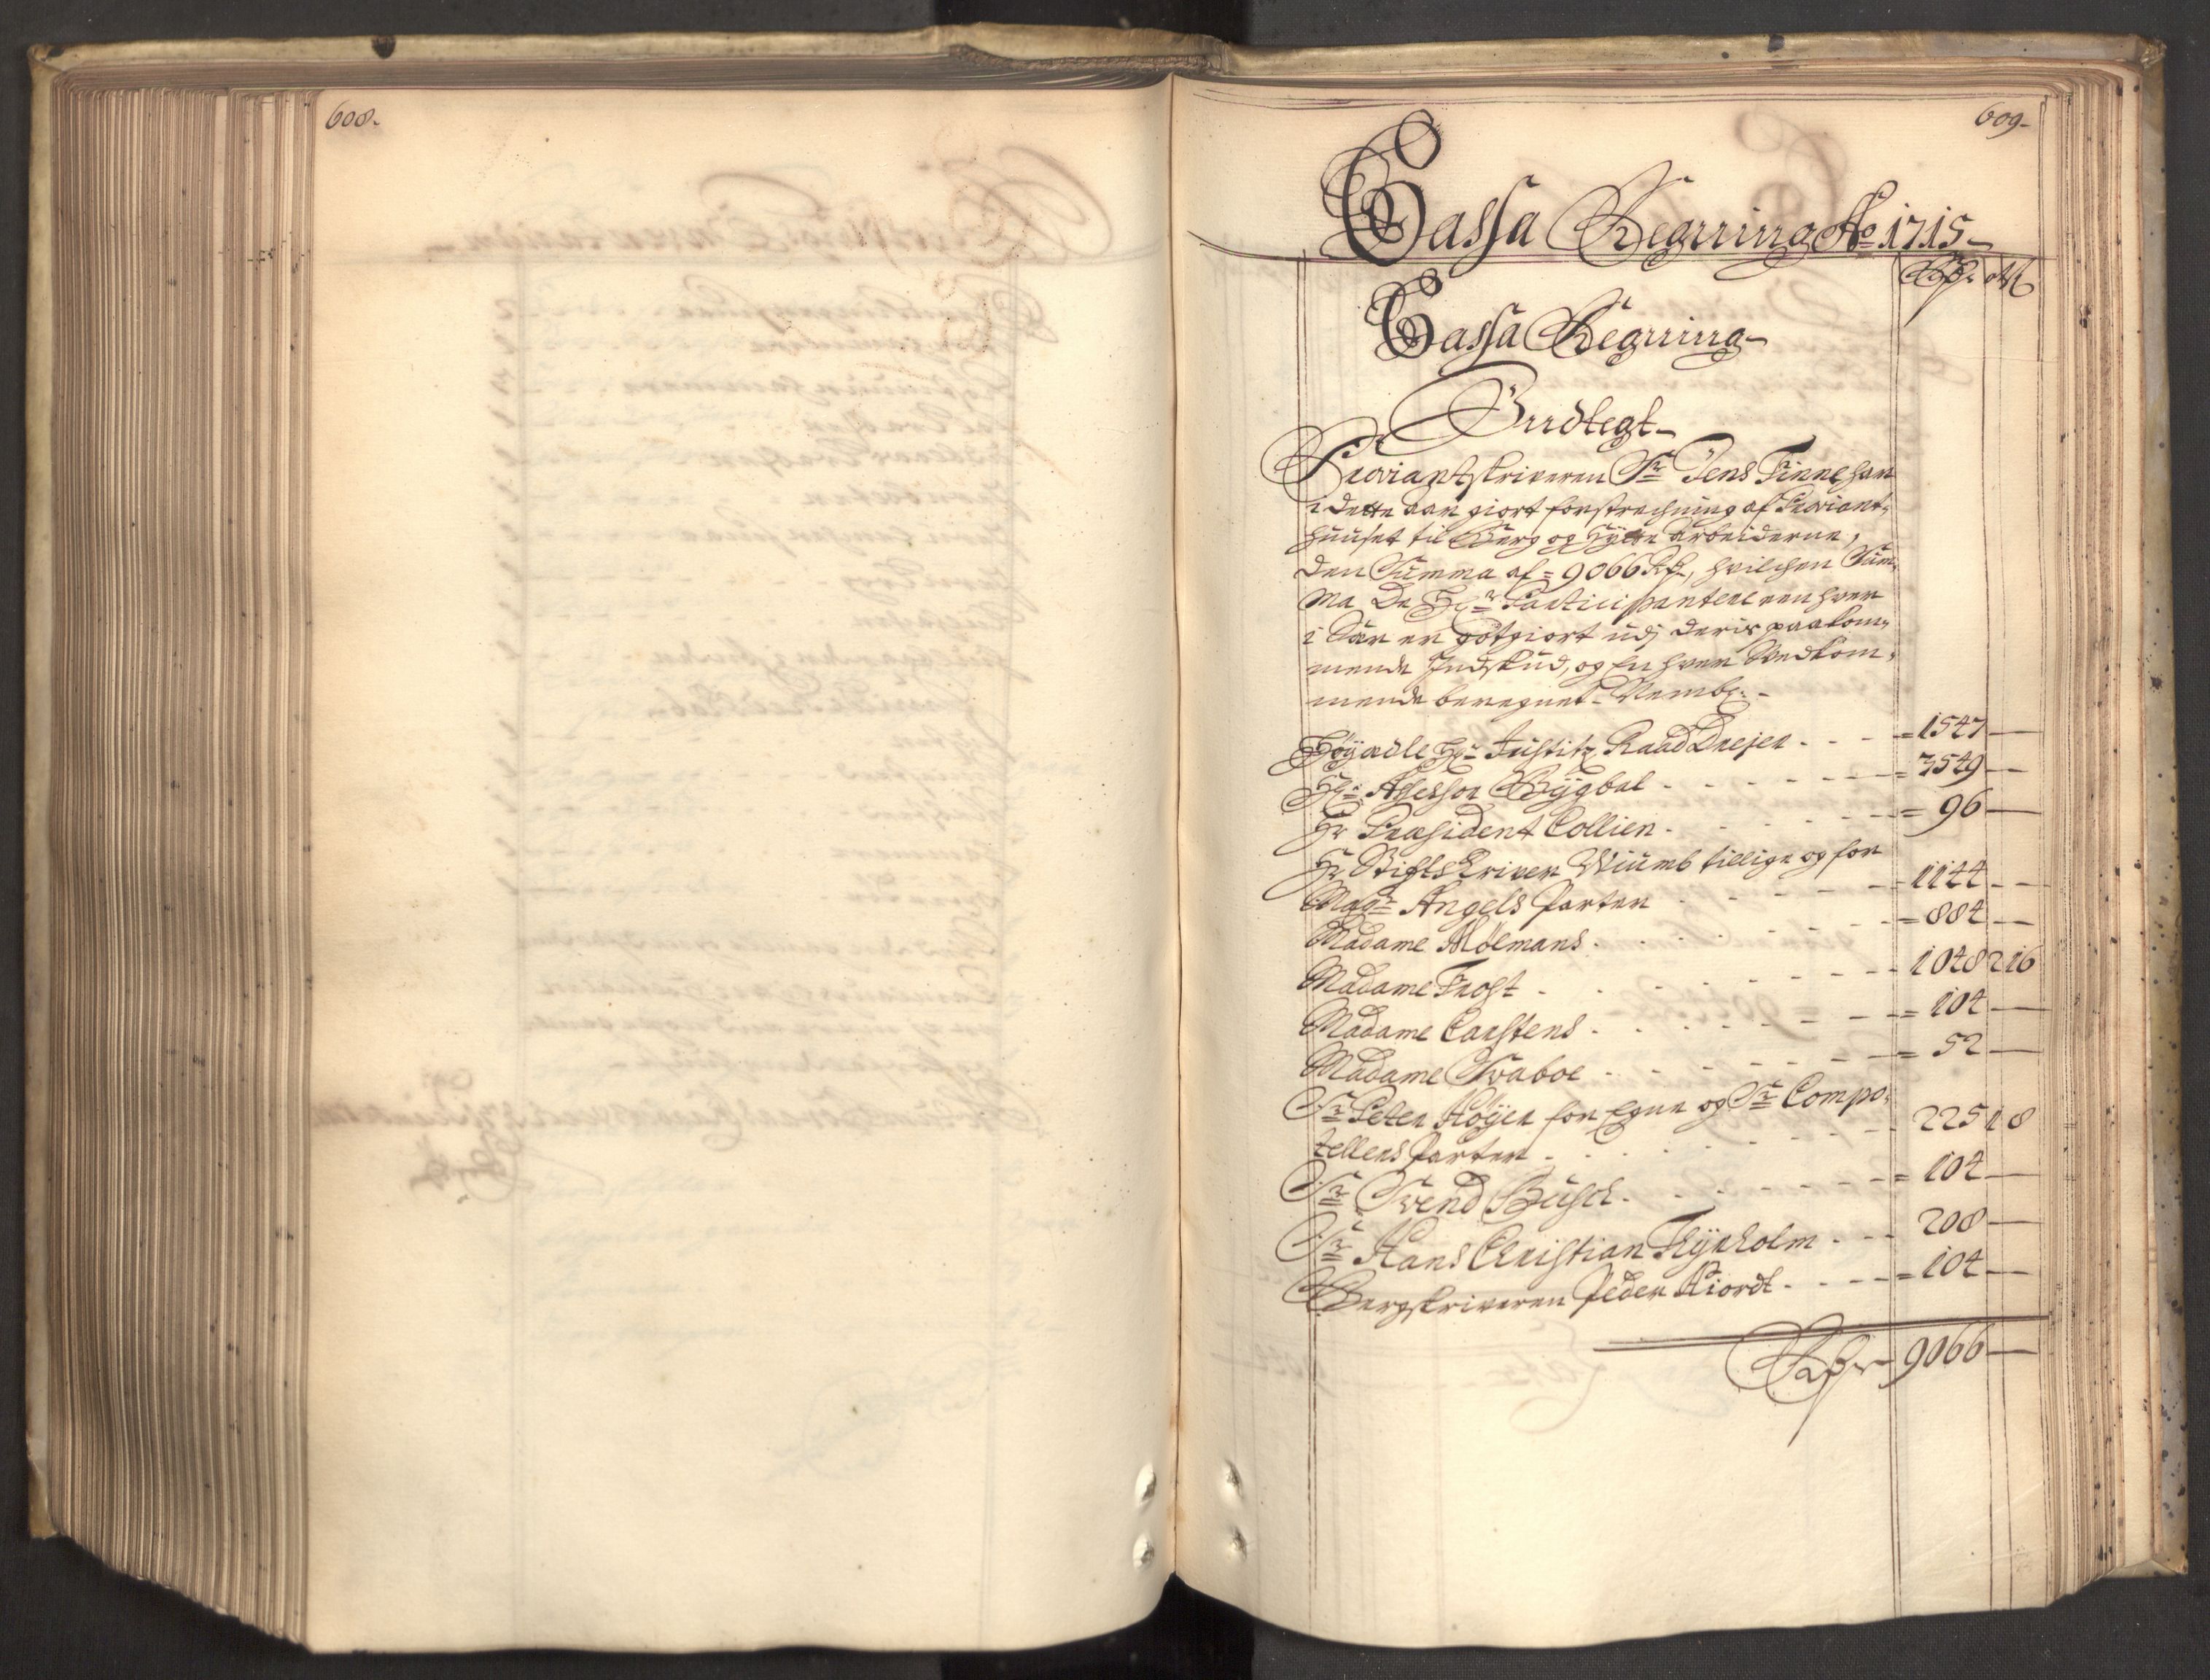 608.
609.
Cassa Regning Ao 1715
Rdr
Cassa Regning
Indtegt
Proviantskriveren Sr Jens Finne har
i dette aar giort forstrechning af Proviant-
huuset til Berg og Hytte Arbeiderne,
den Summa af = 9066 Rdr, hvilchen Sum-
ma De Hr Participantere een hver
i Sær er godtgiort udj deris paakom-
mende Indskud, og En hver Vedkom-
mende beregnet. Nembl: -
Høyædle Hr Justitz Raad Drejer - - - = 1547 —
Hr Assessor Bÿgbal - - - = 3549 —
Hr Præsident Collien - - - = 96 —
Hr Stiftskriver Wiumb tillige og for
Magr Angels Parter - - - 1144 - -
Madame Mølmans - - - = 884 —
Madame Frost - - - 1048 2 16
Madame Carstens - - - = 104 —
Madame Svaboe - - - = 52 —
Sr Peter Høyer for Egne og Sr Compo-
stellens Parter - - - 225 1 8
Sr Svend Busch - - - = 104 —
Sr Hans Christian Thÿrholm - - - 208 —
Bergskriveren Peder Hiordt - - - = 104 —
Rdr 9066 —